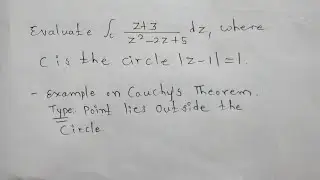 Evaluate ∫c z+3 / z²-2z+5 dz, where
C is the circle |z-1|=1.
- Example on Cauchy's Theorem.
Type: Point lies outside the
Circle